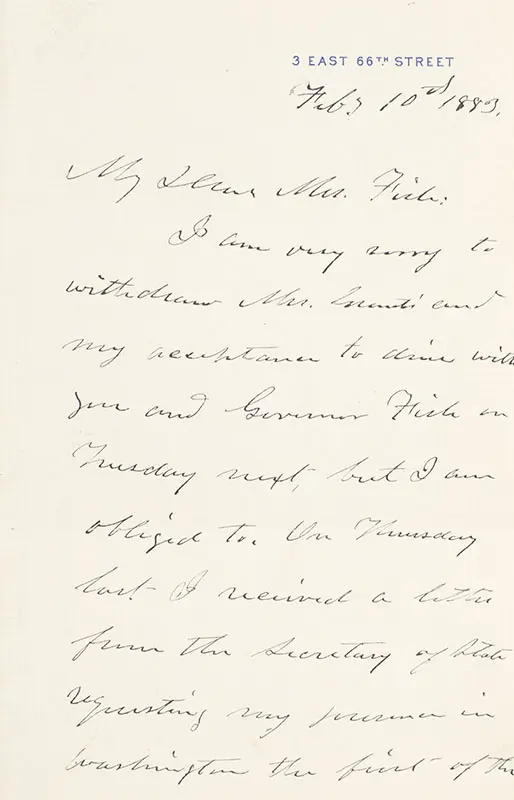 3 EAST 66TH. STREET
Feby 10th 1883.
My Dear Mrs. Fish:
I am very sorry to
withdraw Mrs. Grant's and
my acceptance to dine with
you and Governor Fish on
Tuesday next, but I am
obliged to. On Thursday
last I received a letter
from the Secretary of State
requesting my presence in
Washington the first of the